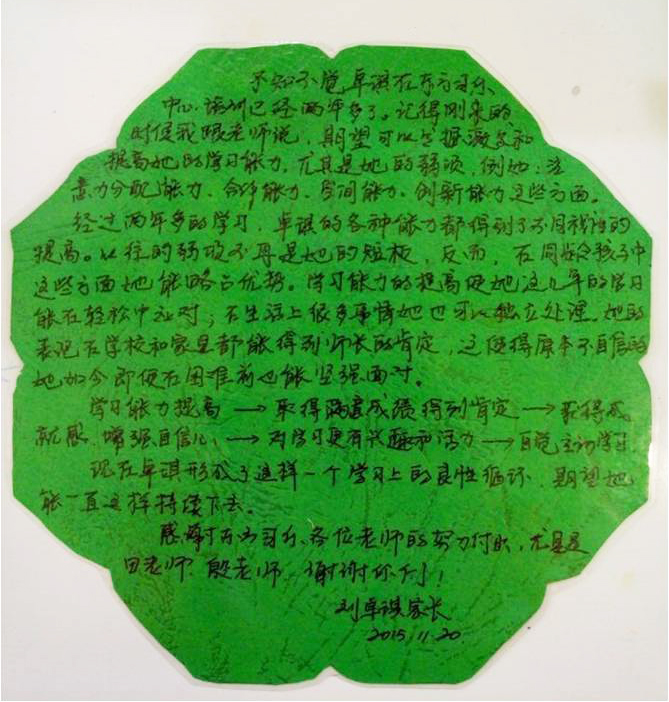 不知不觉卓淇在东方习乐
中心培训已经两年多了。记得刚来的
时侯我跟老师说，期望可以发掘激发和
提高她的学习能力，尤其是她的弱项，例如：注
意力分配能力、合作能力、空间能力、创新能力这些方面。
经过两年多的学习，卓淇的各种能力都得到了不同程度的
提高。以往的弱项不再是她的短板，反而，在同龄孩子中
这些方面她能略占优势。学习能力的提高使她这几年的学习
能在轻松中应对；在生活上很多事情她也可以独立处理。她的
表现在学校和家里都能得到师长的肯定，这使得原本不自信的
她如今即使在困难前也能坚强面对。
学习能力提高 → 取得满意成绩得到肯定 → 获得成
就感、增强自信心 → 对学习更有兴趣和活力 → 自觉主动学习
现在卓淇形成了这样一个学习上的良性循环，期望她
能一直这样持续下去。
感谢东方习乐各位老师的努力付出，尤其是
田老师、殷老师，谢谢你们！
刘卓淇家长
2015.11.20